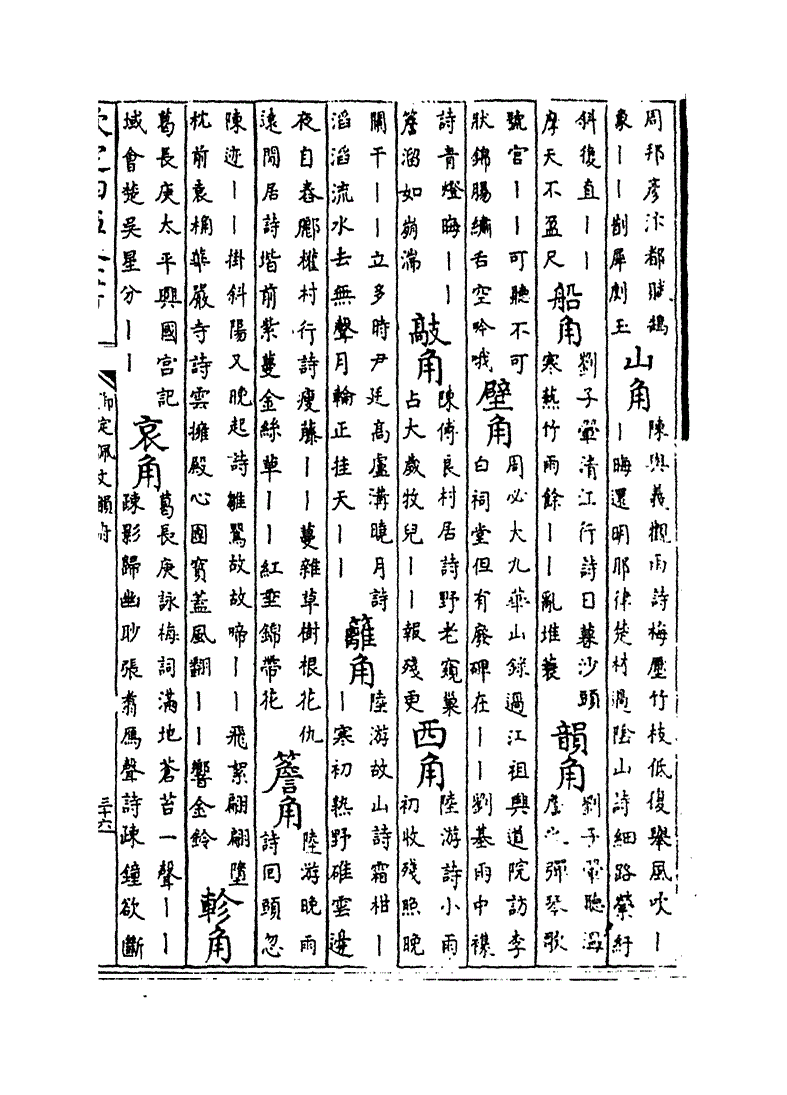 周邦彥汴都賦鵷
象丨丨剒犀劀玉
山角
陳與義觀雨詩梅壓竹枝低復舉風吹丨
丨晦還明耶律楚材過陰山詩細路縈紆
斜復直丨丨
摩天不盈尺
船角
劉子翬清江行詩日暮沙頭
寒爇竹雨餘丨丨亂堆蓑
韻角
劉子翬聽
彈琴歌
號宮丨丨可聽不可
狀錦腸繡舌空吟哦
壁角
周必大九華山錄過江祖興道院訪李
白祠堂但有廢碑在丨丨劉基雨中襍
詩青燈晦丨丨
簷溜如崩湍
敲角
陳傅良村居詩野老窺巢
占大歲牧兒丨丨報殘更
西角
陸游詩小雨
初收殘照晚
闌干丨丨立多時尹廷高盧溝曉月詩
滔滔流水去無聲月輪正挂天丨丨
籬角
陸游故山詩霜柑丨
丨寒初熟野碓雲邊
夜自舂酈權村行詩瘦藤丨丨蔓雜草樹根花仇
遠閒居詩堦前紫蔓金絲草丨丨紅垂錦帶花
簷角
陸游晚雨
詩回頭忽
陳迹丨丨掛斜陽又晚起詩雛鶯故故啼丨丨飛絮翩翩墮
枕前袁桷華嚴寺詩雲擁殿心團寶蓋風翻丨丨響金鈴
軫角
葛長庚太平興國宮記
域會楚吳星分丨丨
哀角
葛長庚詠梅詞滿地蒼苔一聲丨丨
疎影歸幽眇張翥鴈聲詩疎鐘欲斷
御定佩文韻府
三十六